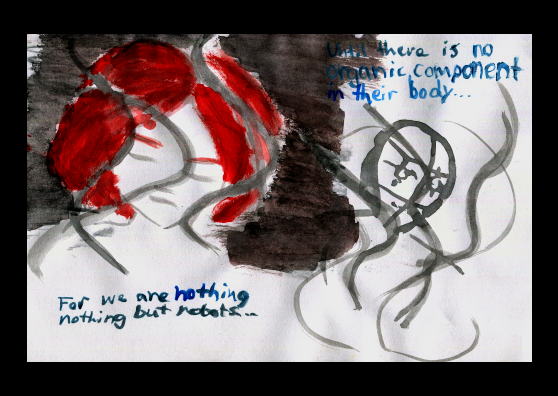 Until there is no
organic component
in their body...
For we are nothing
nothing but robots...